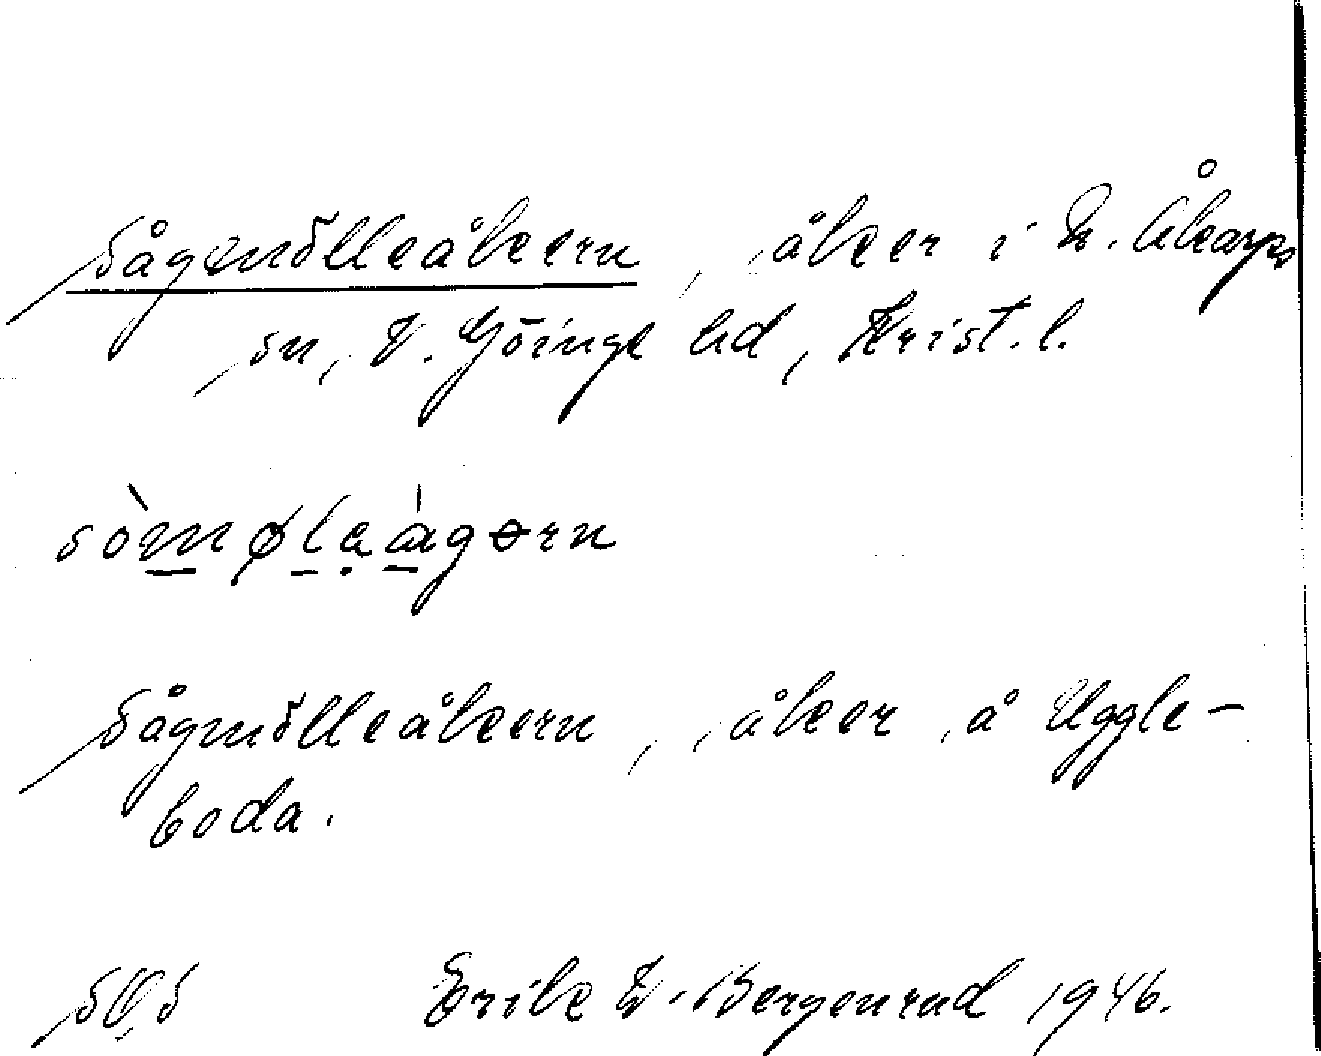 Sågemölleåkern, åker i N. Åkarps
sn, V. Göinge hd, Krist.l.
sòmøleågərn
Sågmölleåkern, åker å Uggle-
boda.
Erik W. Bergenrud 1946.